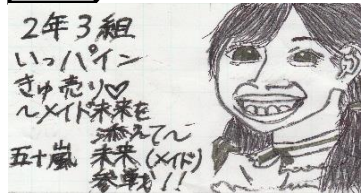 2年3組
いっパイン
きゅ売り♡
〜メイド未来を
添えて〜
五十嵐 未来(メイド)
参戦!!